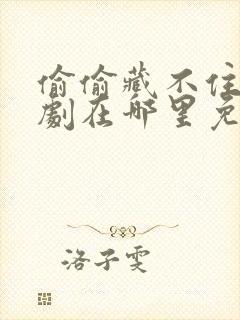 偷偷藏不住
剧在哪里免
洛子雯